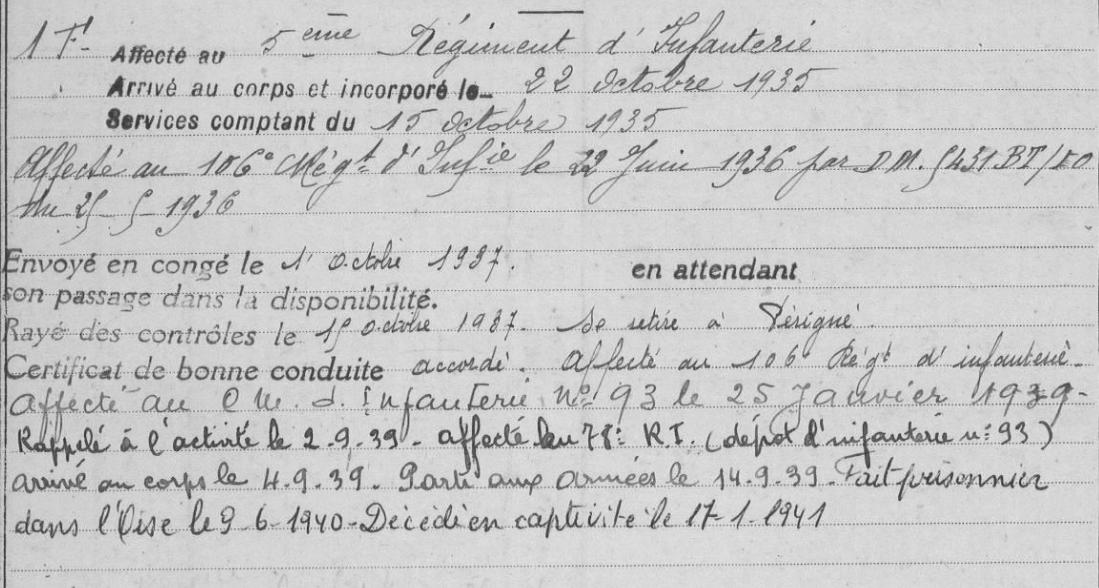 1 F Affecté au 5ème Régiment d'Infanterie
Arrivé au corps et incorporé le 22 octobre 1935
Services comptant du 15 octobre 1935
Affecté au 106e Régt d'Infie le 22 Juin 1936 par D.M. 5431 BT/
du 25 5 1936
Envoyé en congé le 1er Octobre 1937. en attendant
son passage dans la disponibilité.
Rayé des contrôles le 15 octobre 1937. Se retire à Périgné.
Certificat de bonne conduite accordé. Affecté au 106e Régt d'infanterie.
Affecté au C.M. d'Infanterie No 93 le 25 Janvier 1939.
Rappelé à l'activité le 2.9.39. affecté au 78e R.I. (dépôt d'infanterie n° 93)
arrivé au corps le 4.9.39. Parti aux Armées le 14.9.39. Fait prisonnier
dans l'Oise le 9-6-1940-Décédé en captivité le 17-1-1941